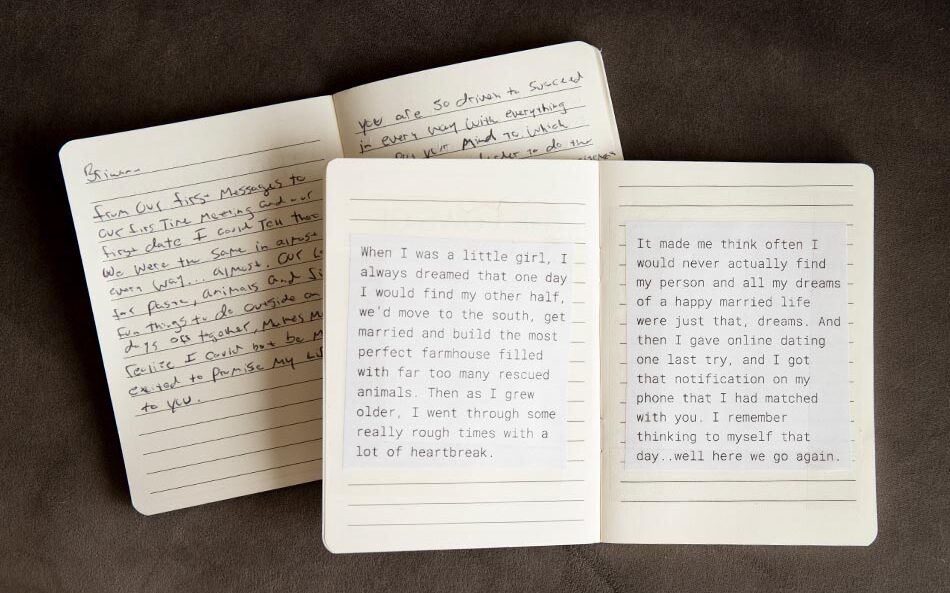 from our first messages to
our first time meeting and our
first date I could tell that
we were the same in almost
every way.... almost. Our
for pasta, animals and
fun things to do outside
dogs together, makes
realize I could not be
exited to promise my
to you.
you are so driven to succeed
in every way with everything
put your mind to which
to do the
When I was a little girl, I
always dreamed that one day
I would find my other half,
we'd move to the south, get
married and build the most
perfect farmhouse filled
with far too many rescued
animals. Then as I grew
older, I went through some
really rough times with a
lot of heartbreak.
It made me think often I
would never actually find
my person and all my dreams
of a happy married life
were just that, dreams. And
then I gave online dating
one last try, and I got
that notification on my
phone that I had matched
with you. I remember
thinking to myself that
day..well here we go again.